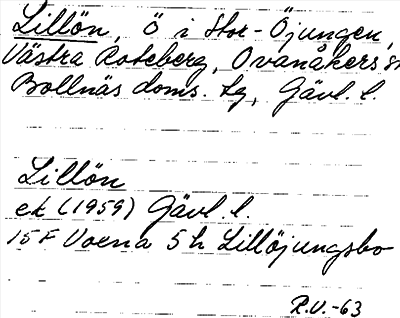 Lillön, ö i Stor-Öjungen,
Västra Roteberg, Ovanåkers sn
Bollnäs doms. tg, Gävl. l.
Lillön
ek (1959) Gävl. l.
15F Voxna 5h Lillöjungsbo
R.U.-63